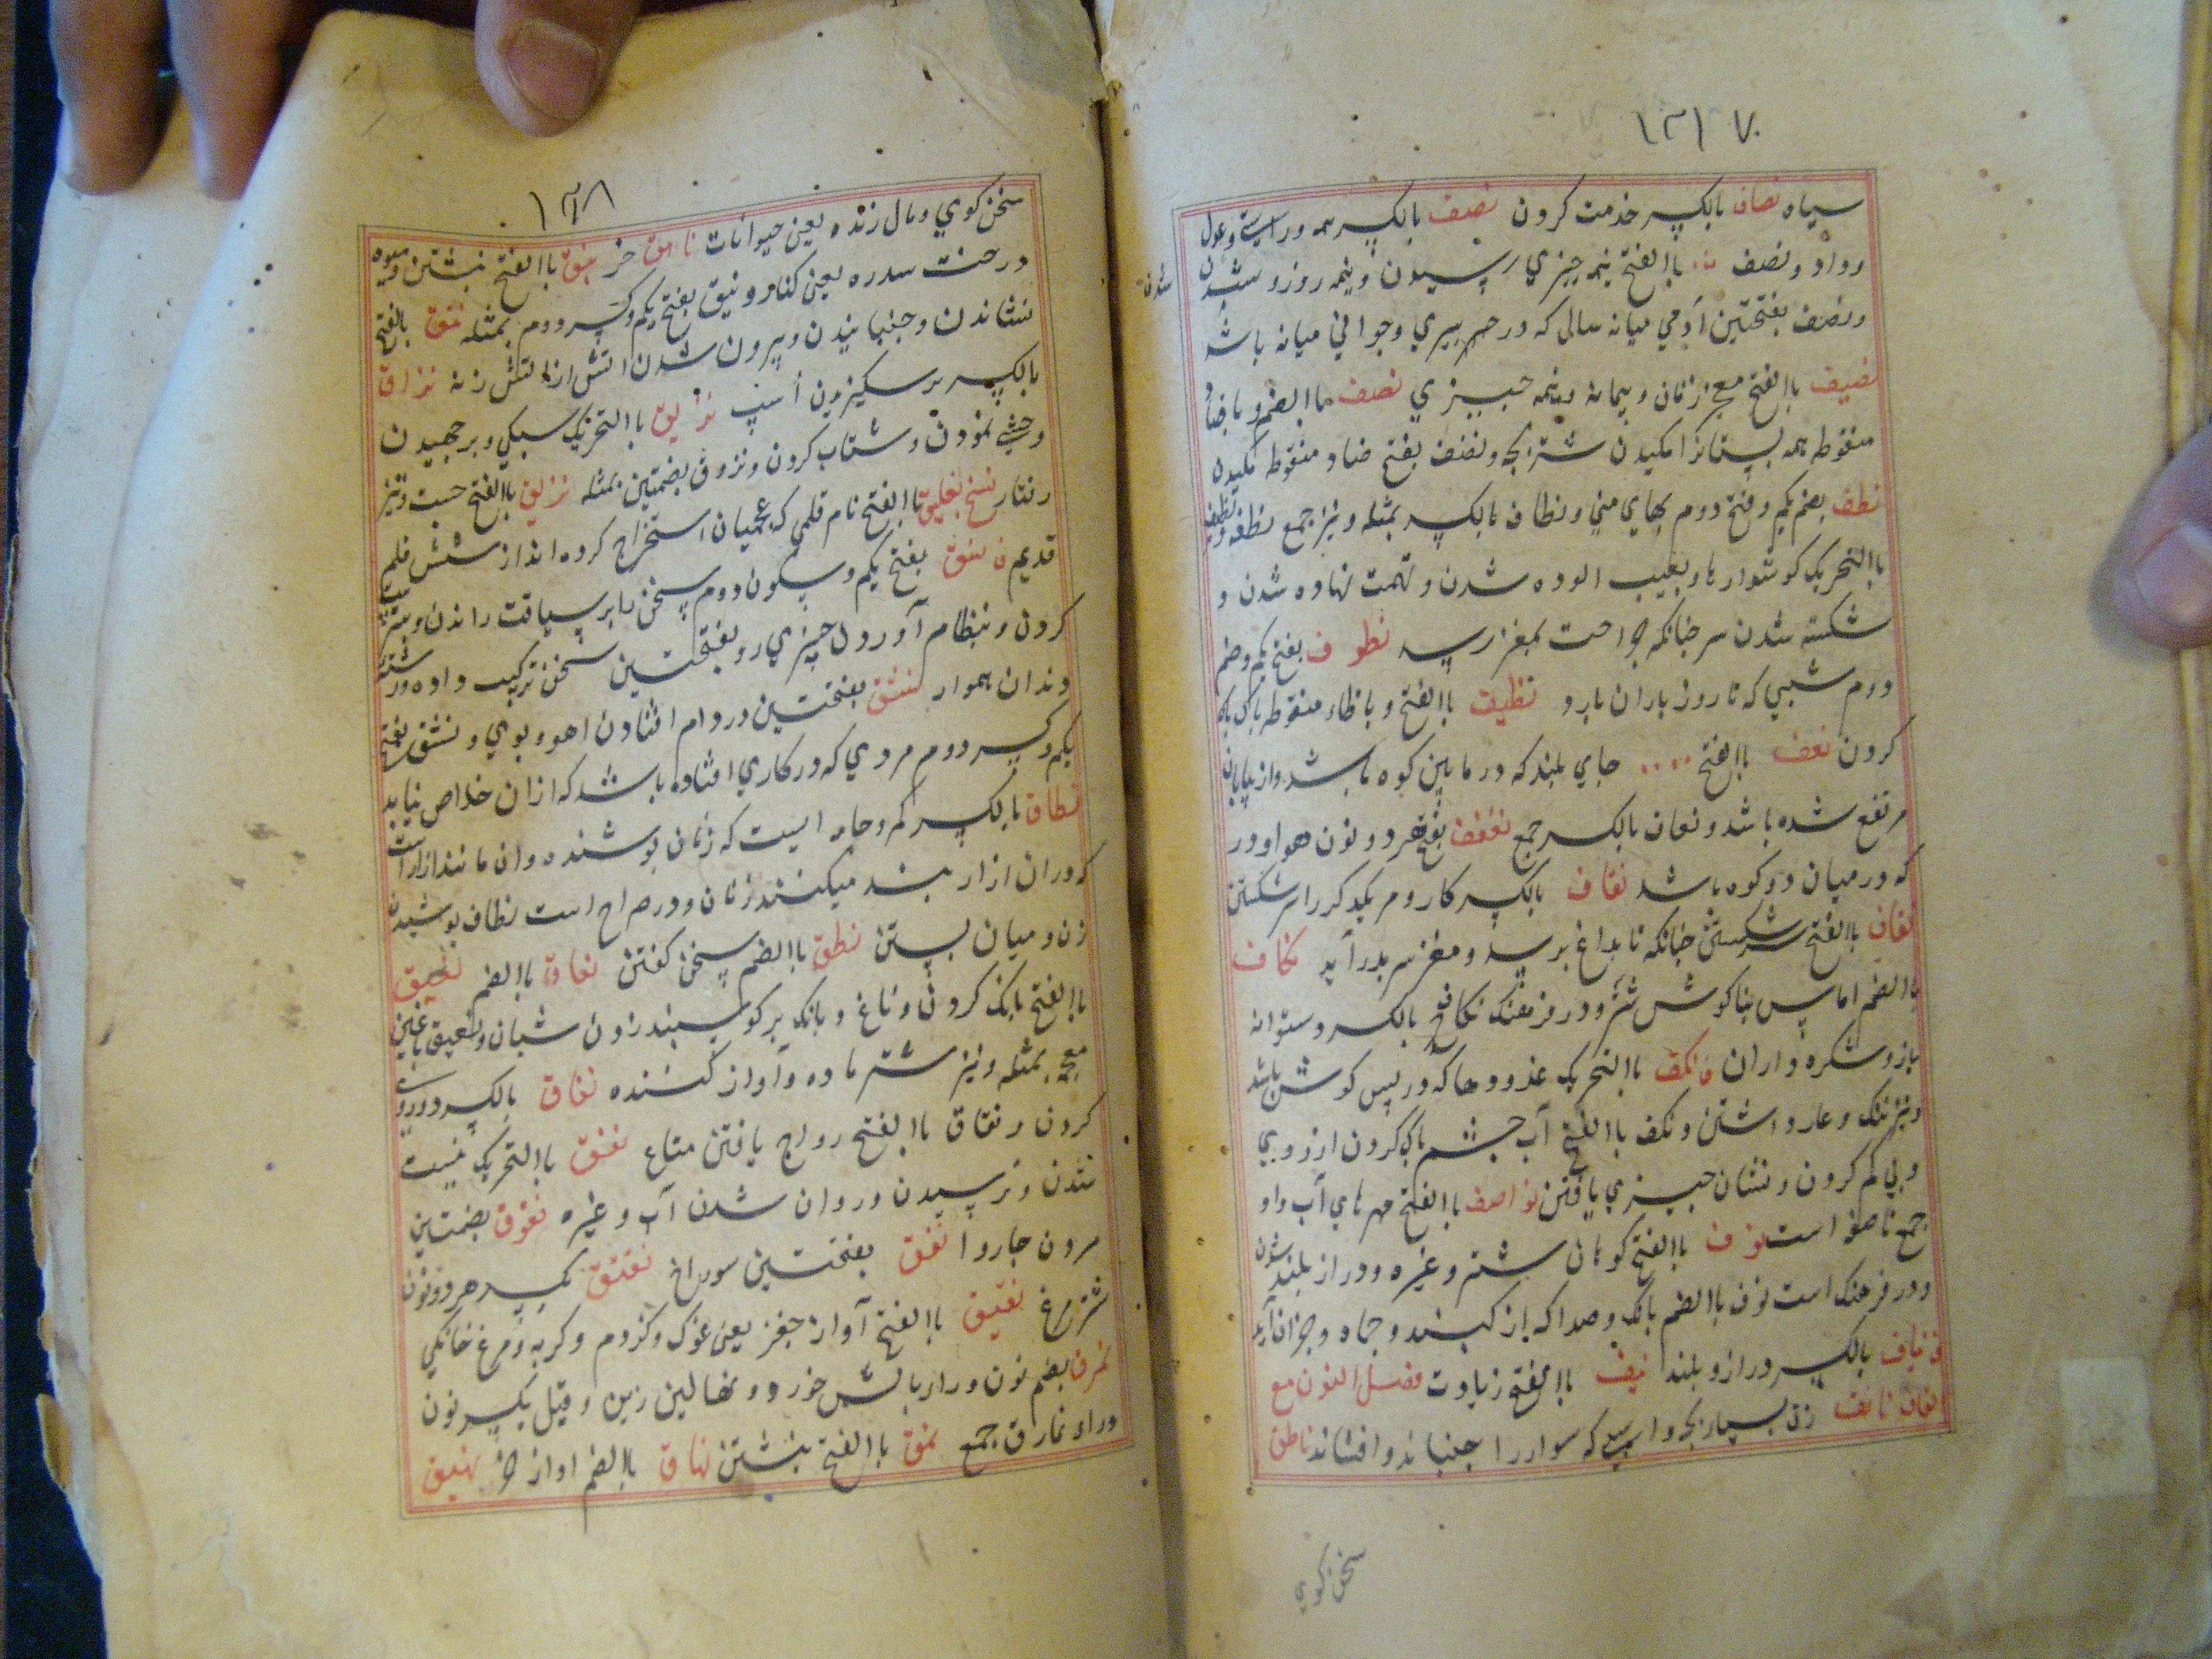 ۱۳۱۷
سیاه نصاف بالکسر خدمت کردن نصف بالکسر همه و راستی و عدل
و داد و نصف باالفتح نیمه چیزی رسیدن و نیمه روز و شدن
شدن
و نصف بفتحتین آدمی میانه سالی که در حد پیری و جوانی میانه باشد
نصیف باالفتح معجر زنان و پیمانه و نیمه چیزی نضف باالضم و با ضاد
منقوطه همه پستانرا مکیدن شتر بچه و نضف بفتح ضاد منقوطه مکیدن
نطف بضم یکم و فتح دوم بهای منی و نطاف بالکسر بمثله و نیز جمع نطفه و نطف
باالتحریک کوشوارها و بعیب الوده شدن و تهمت نهاده شدن و
شکسته شدن سر چنانکه جراحت بمغز رسد نطوف بفتح یکم و ضم
دوم شبی که تا روز باران بارد نظیف باالفتح و با ظاء منقوطه پاک
کردن نعف باالفتح جای بلند که در مابین کوه باشد و از بیابان
مرتفع شده باشد و نعاف بالکسر جمع نغنف بفتح هر دو نون هوا و در
که در میان دو کوه باشد نقاف بالکسر کار و مر یکدیکر را سر شکستن
نقاف باالفتح سر شکستن چنانکه تا بداغ برسد و مغز سر بدر آید نکاف
باالضم اماس بناکوش شتر و در فرهنک نکاف بالکسر دستوانه
باز و شکره داران نکف باالتحریک غدودها که در پس کوش باشد
و نیز ننک و عار داشتن و نکف باالفتح آب چشم پاک کردن از روی
و پی کم کردن و نشان چیزی یافتن نواصف باالفتح مهرهای آب و او
جمع ناصفه است نوف باالفتح کوهان شتر و غیره و دراز بلند شدن
و در فرهنک است نوف باالضم بانک و صدا که از کنبد و چاه و جز ان آید
نیاف بالکسر دراز و بلند نیف باالفتح زیادت فصل النون مع
القاف ناتق زن بسیار بچه و اسپی که سوار را جنباند و افشاند ناطق
سخن کوی
۱۳۱۸
سخن کوی و مال زنده یعنی حیوانات ناهق خر نبق باالفتح نبشتن و میوه
درخت سدره یعنی کنار و نبق بفتح یکم و کسر دوم بمثله نتق بالفتح
نشاندن و جنبانیدن و بیرون شدن اتش از اتش زنه نزاق
بالکسر بر سکیزیدن اسپ نزایق باالتحریک سبکی و برجهیدن
و چستی نمودن و شتاب کردن و نزوق بضمتین بمثله نزیق باالفتح چست و تیز
رفتار نسخ تعلیق باالفتح نام قلمی که عجمیان استخراج کرده اند از شش قلم
قدیم نسق بفتح یکم و سکون دوم سخن را بر سیاقت راندن و
کردن و بنظام آوردن چیزی و بفتحتین سخن ترکیب داده و رشته
دندان هموار نشق بفتحتین در دام افتادن اهو و بوی و نشق بفتح
یکم و کسر دوم مردی که در کاری افتاده باشد که ازان خلاص نیابد
نطاق بالکسر کمر و جامه ایست که زنان پوشند و ان مانند ازار است
که در ان ازار بند میکنند زنان و در صراح است نطاف پوشیدن
زن و میان بستن نطق باالضم سخن کفتن نعاق باالضم نعیق
باالفتح بانک کردن زاغ و بانک بر کوسپند زدن شبان و نغیق باغین
معجمه بمثله و نیز شتر ماده و آواز کننده نفاق بالکسر دورویی
کردن و نفاق باالفتح رواج یافتن متاع نفق باالتحریک نیست
شدن و ترسیدن و روان شدن آب و غیره نفوق بضمتین
مردن چاروا نفق بفتحتین سوراخ نقنق بکسر هر دو نون
شترمرغ نقیق باالفتح آواز جغز یعنی غوک و کژدم و کربه و مرغ خانکی
نمرق بضم نون و را و بالش خرد و نهالین زین و قیل بکسر نون
و راء نمارق جمع نمق باالفتح نبشتن نهاق باالضم اواز خر نهیق